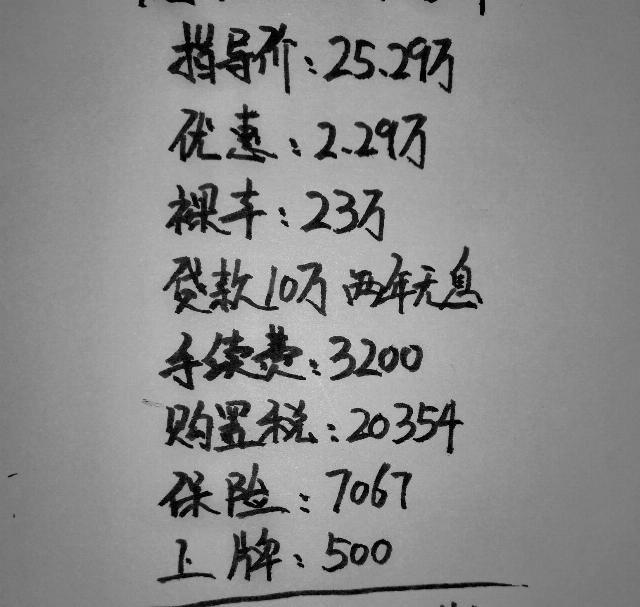 指导价：25.29万
优惠：2.29万
裸车：23万
贷款10万 两年无息
手续费：3200
购置税：20354
保险：7067
上牌：500